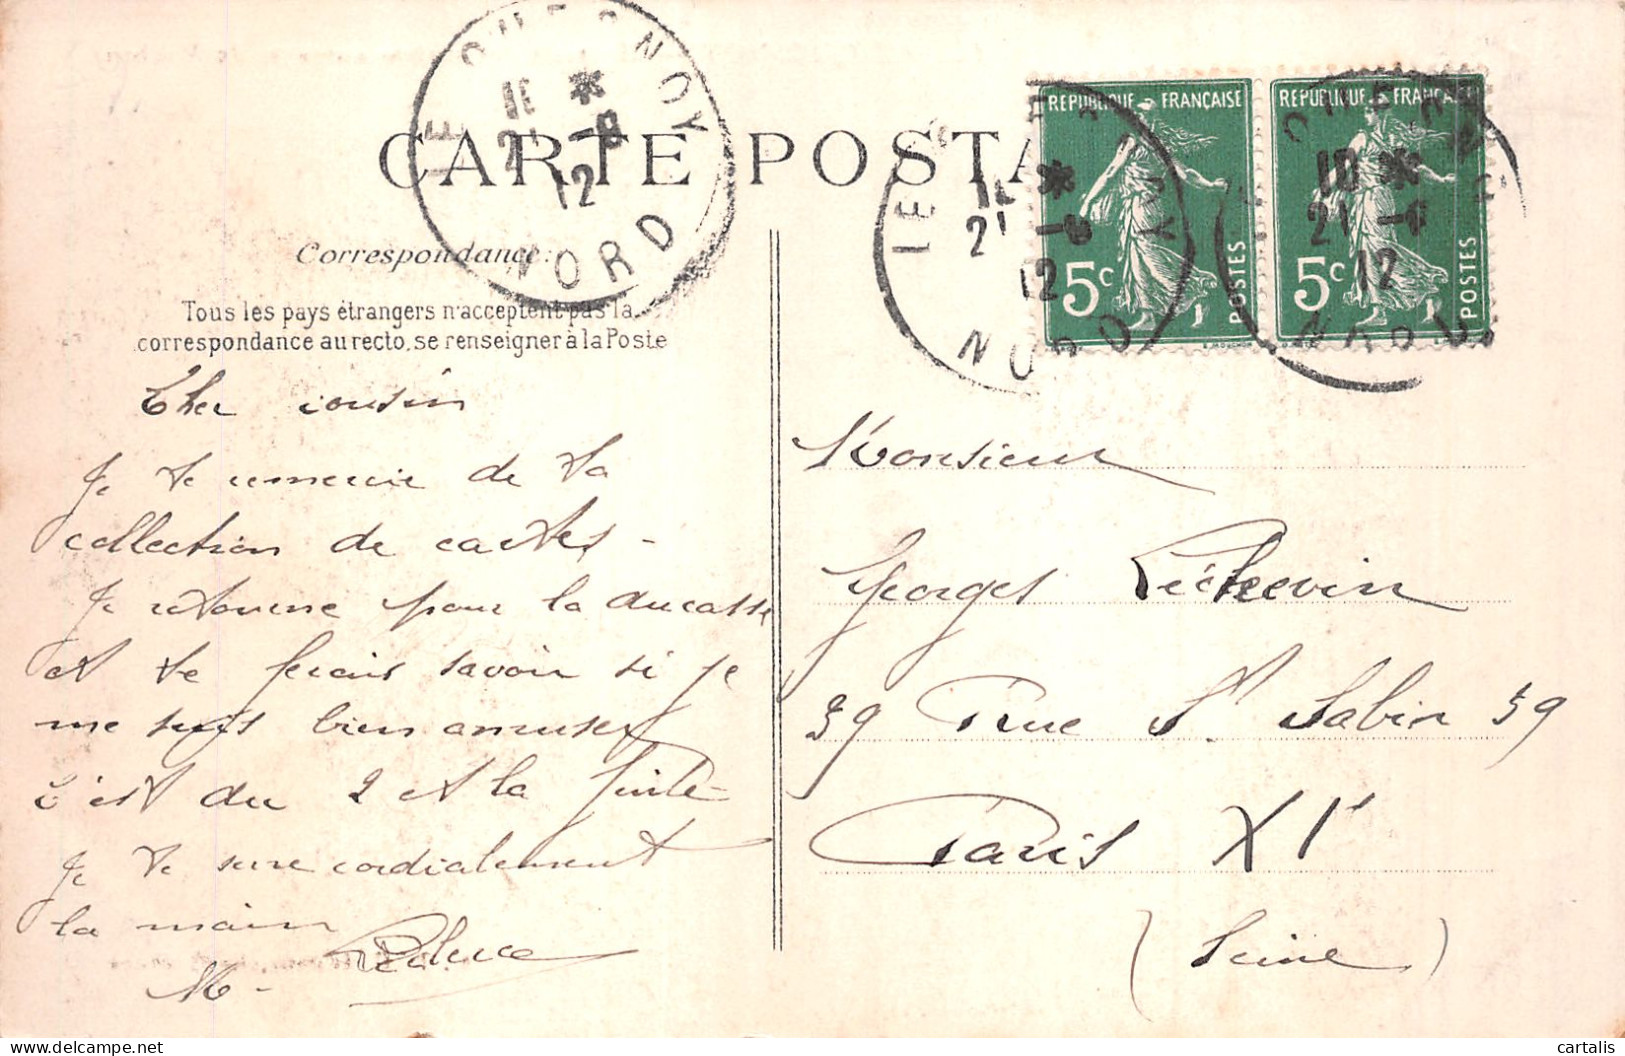 CARTE POSTA
Correspondance:
Tous les pays étrangers n'acceptent pas la
correspondance au recto, se renseigner à la Poste
LE QUESNOY
NORD
21 -8
12
LE QUESNOY
NORD
18
21 -8
12
LE QUESNOY
NORD
18
21 -8
12
REPUBLIQUE FRANÇAISE
5c
POSTES
REPUBLIQUE FRANÇAISE
5c
POSTES
Cher cousin
Je te remercie de ta
collection de cartes -
Je retourne pour la ducasse
et te ferais savoir si je
me suis bien amuser
c'est du 2 et la suite
Je te serre cordialement
la main
M -
Monsieur
Georges Léchevin
59 Rue St Sabin 59
Paris XIe
(Seine)
cartalis